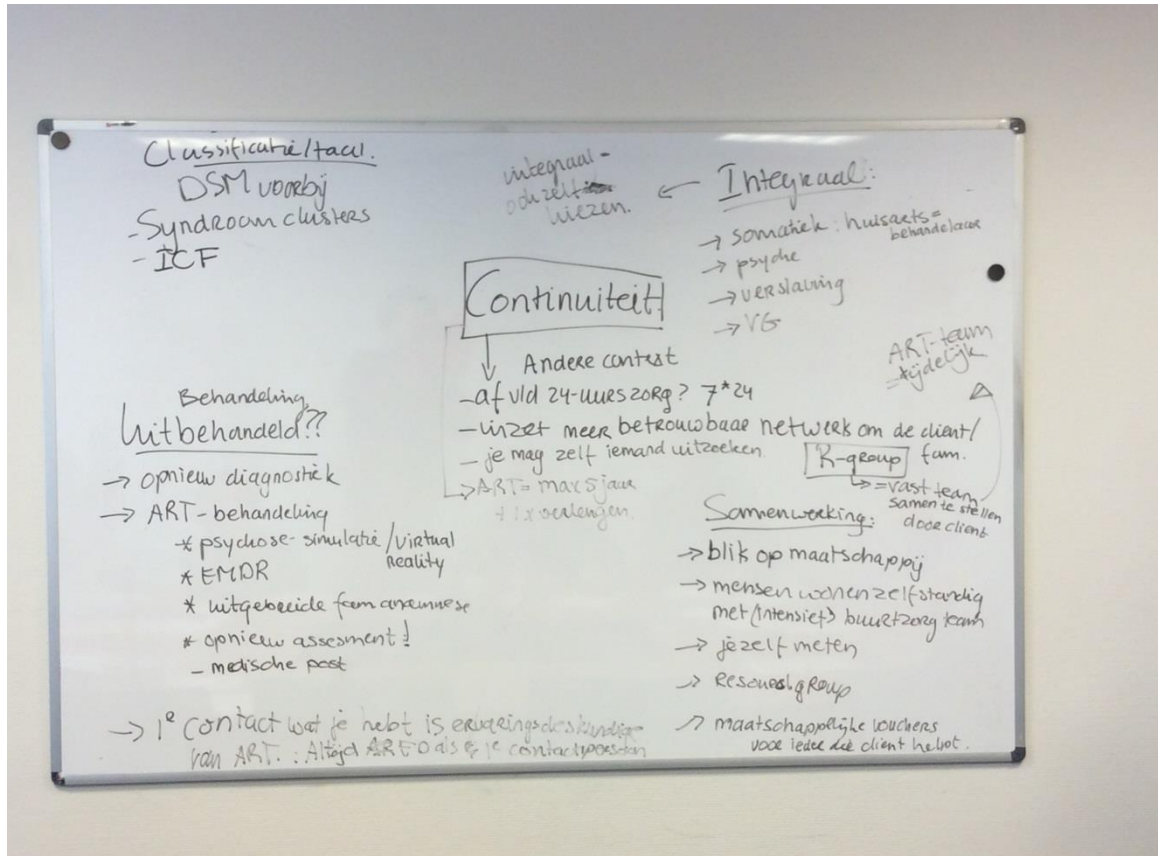 Classificatie/taal.
DSM voorbij
- Syndroom clusters
- ICF
integraal -
kiezen.
Integraal:
→ somatiek : huisarts =
behandelaar
→ psyche
→ verslaving
→ VG
Continuiteit!
Andere context
- af v/d 24-uurs zorg? 7*24
- inzet meer betrouwbaar netwerk om de client/
fam.
- je mag zelf iemand uitzoeken
→ ART = max 5 jaar
+ 1x verlengen.
ART-team
= tijdelijk
R-group
↳ = vast team
samen te stellen
door client
Behandeling
Uitbehandeld??
→ opnieuw diagnostiek
→ ART-behandeling
* psychose-simulatie/virtual
Reality
* EMDR
* uitgebreide fam anamnese
* opnieuw assesment!
- medische post
Samenwerking:
→ blik op maatschappij
→ mensen wonen zelfstandig
met (intensief) buurtzorg team
→ jezelf meten
→ group
→ maatschappelijke vouchers
voor ieder die client helpt.
→ 1e contact wat je hebt is ervaringsdeskundige
van ART. : Altijd als 1e contactpersoon